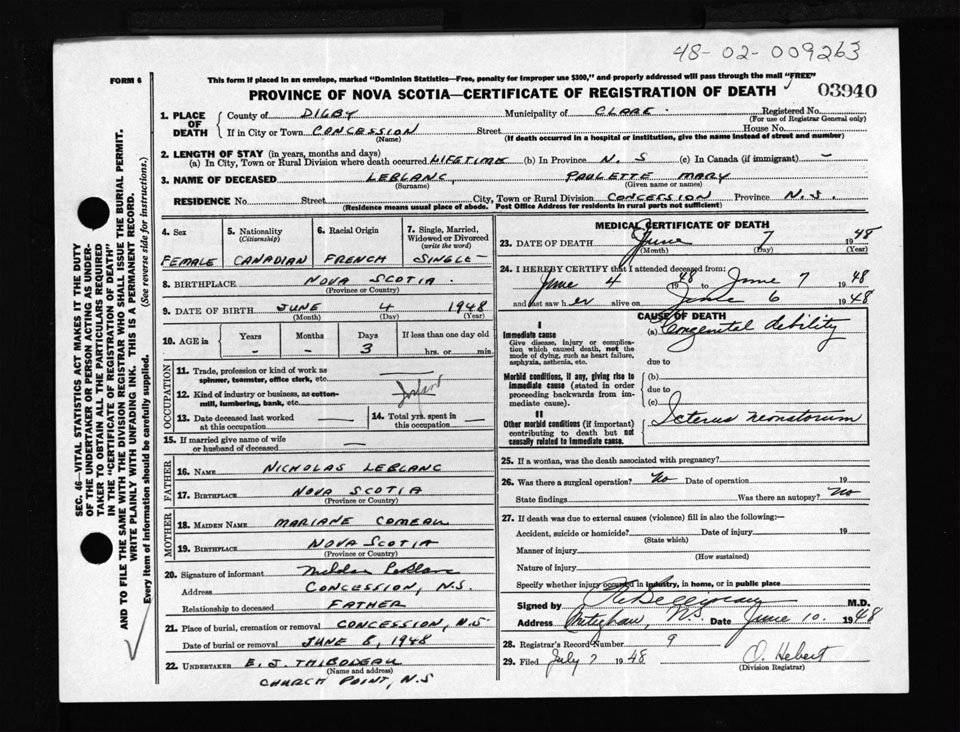 48-02-009263
FORM 6
This form if placed in an envelope, marked "Dominion Statistics—Free, penalty for improper use $300," and properly addressed will pass through the mail "FREE"
PROVINCE OF NOVA SCOTIA—CERTIFICATE OF REGISTRATION OF DEATH
03940
SEC. 46—VITAL STATISTICS ACT MAKES IT THE DUTY
OF THE UNDERTAKER OR PERSON ACTING AS UNDER-
TAKER TO OBTAIN ALL THE PARTICULARS REQUIRED
IN THE "CERTIFICATE OF REGISTRATION OF DEATH"
AND TO FILE THE SAME WITH THE DIVISION REGISTRAR WHO SHALL ISSUE THE BURIAL PERMIT.
WRITE PLAINLY WITH UNFADING INK. THIS IS A PERMANENT RECORD.
Every item of information should be carefully supplied. (See reverse side for instructions.)
1. PLACE OF DEATH
County of DIGBY Municipality of CLARE Registered No.
(For use of Registrar General only)
If in City or Town CONCESSION Street House No.
(Name) (If death occurred in a hospital or institution, give the name instead of street and number)
2. LENGTH OF STAY (in years, months and days)
(a) In City, Town or Rural Division where death occurred LIFETIME (b) In Province N. S (c) In Canada (if immigrant) -
3. NAME OF DECEASED LEBLANC, PAULETTE MARY
(Surname) (Given name or names)
RESIDENCE No. Street City, Town or Rural Division CONCESSION Province N.S.
(Residence means usual place of abode. Post Office Address for residents in rural parts not sufficient)
4. Sex
FEMALE
5. Nationality
(Citizenship)
CANADIAN
6. Racial Origin
FRENCH
7. Single, Married,
Widowed or Divorced
(write the word)
SINGLE-
8. BIRTHPLACE NOVA SCOTIA.
(Province or Country)
9. DATE OF BIRTH JUNE 4 1948
(Month) (Day) (Year)
10. AGE in Years Months Days If less than one day old
- - 3 hrs. or min.
OCCUPATION
11. Trade, profession or kind of work as
spinner, teamster, office clerk, etc.
12. Kind of industry or business, as cotton-
mill, lumbering, bank, etc.
13. Date deceased last worked
at this occupation
14. Total yrs. spent in
this occupation
15. If married give name of wife
or husband of deceased -
FATHER
16. NAME NICHOLAS LEBLANC
17. BIRTHPLACE NOVA SCOTIA
(Province or Country)
MOTHER
18. MAIDEN NAME MARIANE COMEAU
19. BIRTHPLACE NOVA SCOTIA
(Province or Country)
20. Signature of informant
Address CONCESSION, N.S.
Relationship to deceased FATHER
21. Place of burial, cremation or removal CONCESSION, N.S.
Date of burial or removal JUNE 8, 1948
22. UNDERTAKER E. J. THIBODEAU
(Name and address)
CHURCH POINT, N.S
MEDICAL CERTIFICATE OF DEATH
23. DATE OF DEATH June 7 1948
(Month) (Day) (Year)
24. I HEREBY CERTIFY that I attended deceased from:
June 4 1948 to June 7 1948
and last saw her alive on June 6 1948
CAUSE OF DEATH
I
Immediate cause
Give disease, injury or complica-
tion which caused death, not the
mode of dying, such as heart failure,
asphyxia, asthenia, etc.
(a) Congenital debility
due to
Morbid conditions, if any, giving rise to
immediate cause (stated in order
proceeding backwards from im-
mediate cause).
(b)
due to
(c)
II
Other morbid conditions (if important)
contributing to death but not
causally related to immediate cause.
Icterus neonatorum
25. If a woman, was the death associated with pregnancy?
26. Was there a surgical operation? No Date of operation 19
State findings Was there an autopsy? No
27. If death was due to external causes (violence) fill in also the following:—
Accident, suicide or homicide? Date of injury 19
(State which)
Manner of injury
(How sustained)
Nature of injury
Specify whether injury occurred in industry, in home, or in public place
Signed by M.D.
Address Meteghan, N.S. Date June 10. 1948
28. Registrar's Record Number 9
29. Filed July 7 1948 O. Hebert
(Division Registrar)